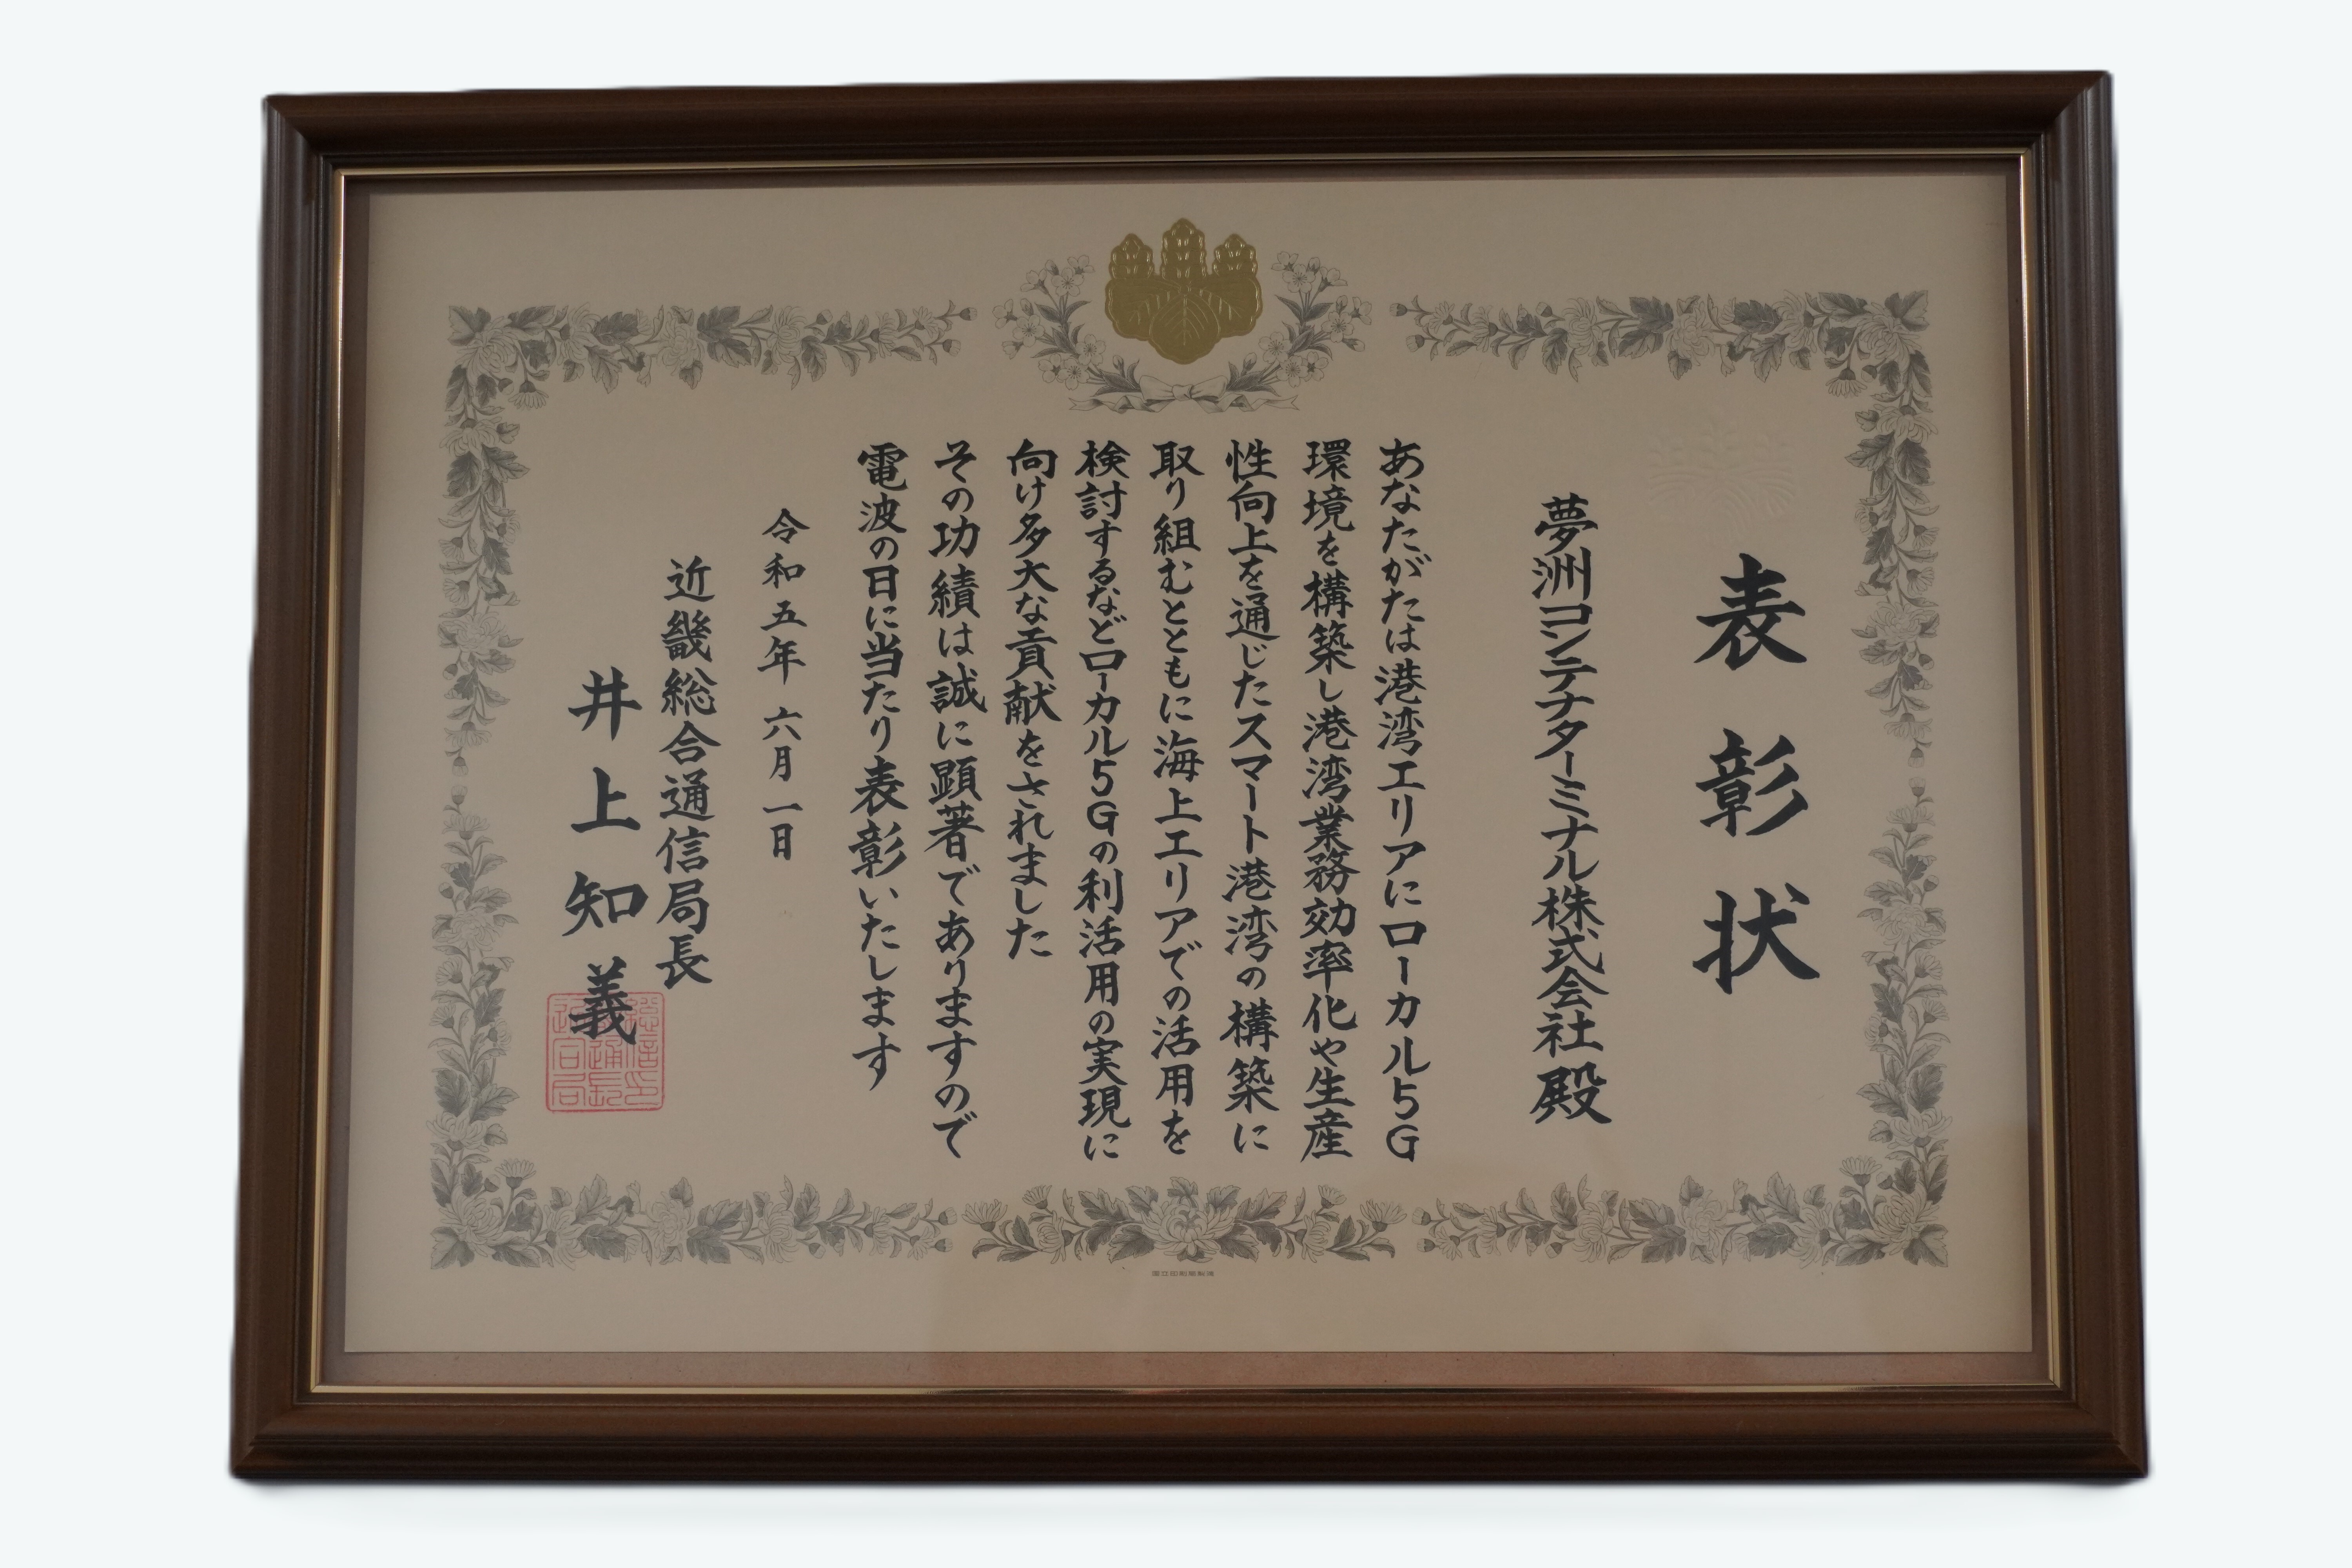 表彰状
夢洲コンテナターミナル株式会社殿
あなたがたは港湾エリアにローカル5G
環境を構築し港湾業務効率化や生産
性向上を通じたスマート港湾の構築に
取り組むとともに海上エリアでの活用を
検討するなどローカル5Gの利活用の実現に
向け多大な貢献をされました
その功績は誠に顕著でありますので
電波の日に当たり表彰いたします
令和五年六月一日
近畿総合通信局長
井上知義